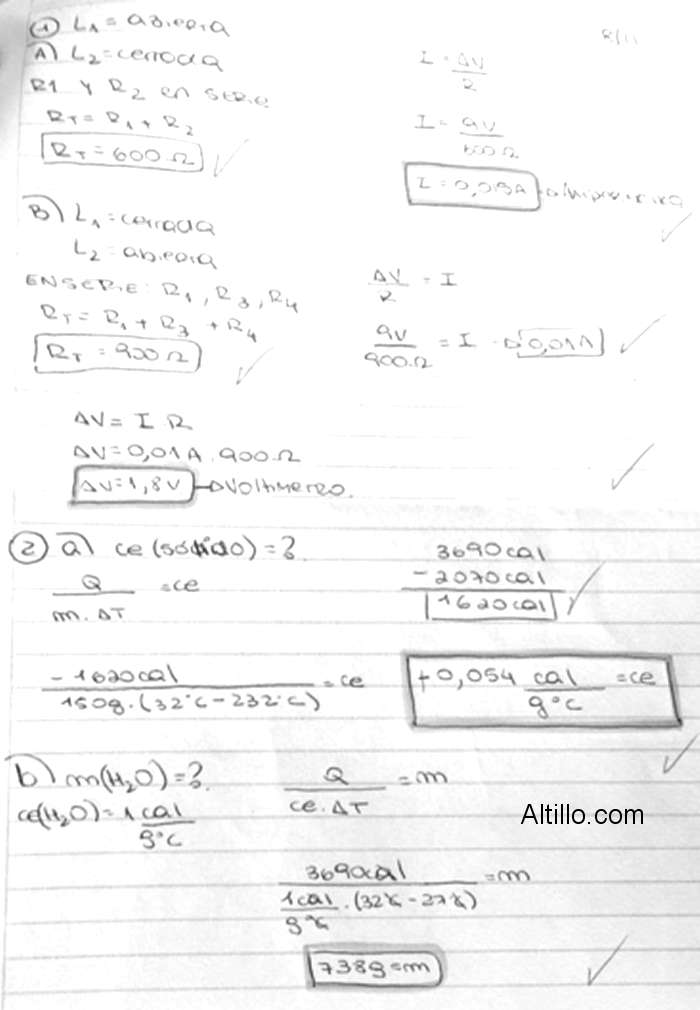 1 L₁ = abierta
A) L₂ = cerrada
R1 y R₂ en serie
R_T = R₁ + R₂
R_T = 600 Ω
I = ΔV / R
I = 9V / 600 Ω
I = 0,015A
B) L₁ = cerrada
L₂ = abierta
EN SERIE: R₁, R₃, R₄
R_T = R₁ + R₃ + R₄
R_T = 900 Ω
ΔV / R = I
9V / 900 Ω = I → 0,01A
ΔV = I . R
ΔV = 0,01A . 900 Ω
ΔV = 1,8V → Voltímetro.
2 a) ce (sólido) = ?
Q / m . ΔT = ce
3690cal
- 2070cal
1620cal
-1620cal / 150g . (32°C - 232°C) = ce
+0,054 cal / g°C = ce
b) m(H₂O) = ?
ce(H₂O) = 1 cal / g°C
Q / ce . ΔT = m
3690cal / 1cal / g°C . (32°C - 27°C) = m
738g = m
Altillo.com